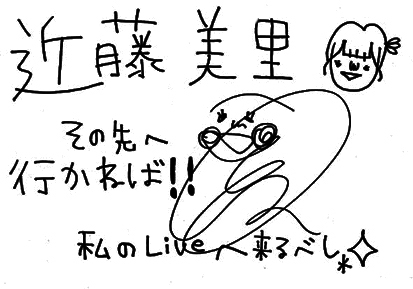 近藤美里
その先へ
行かねば!!
私のLiveへ来るべし